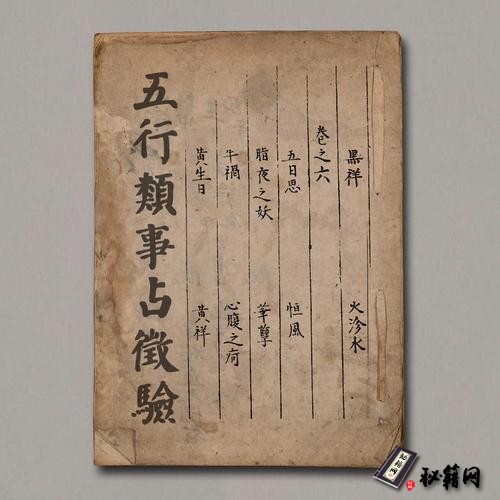 黑祥 火沴水
卷之六
五曰思 恒風
脂夜之妖 華孽
牛禍 心腹之痾
黃生日 黃祥
五行類事占徵驗
秘籍网
秘籍网